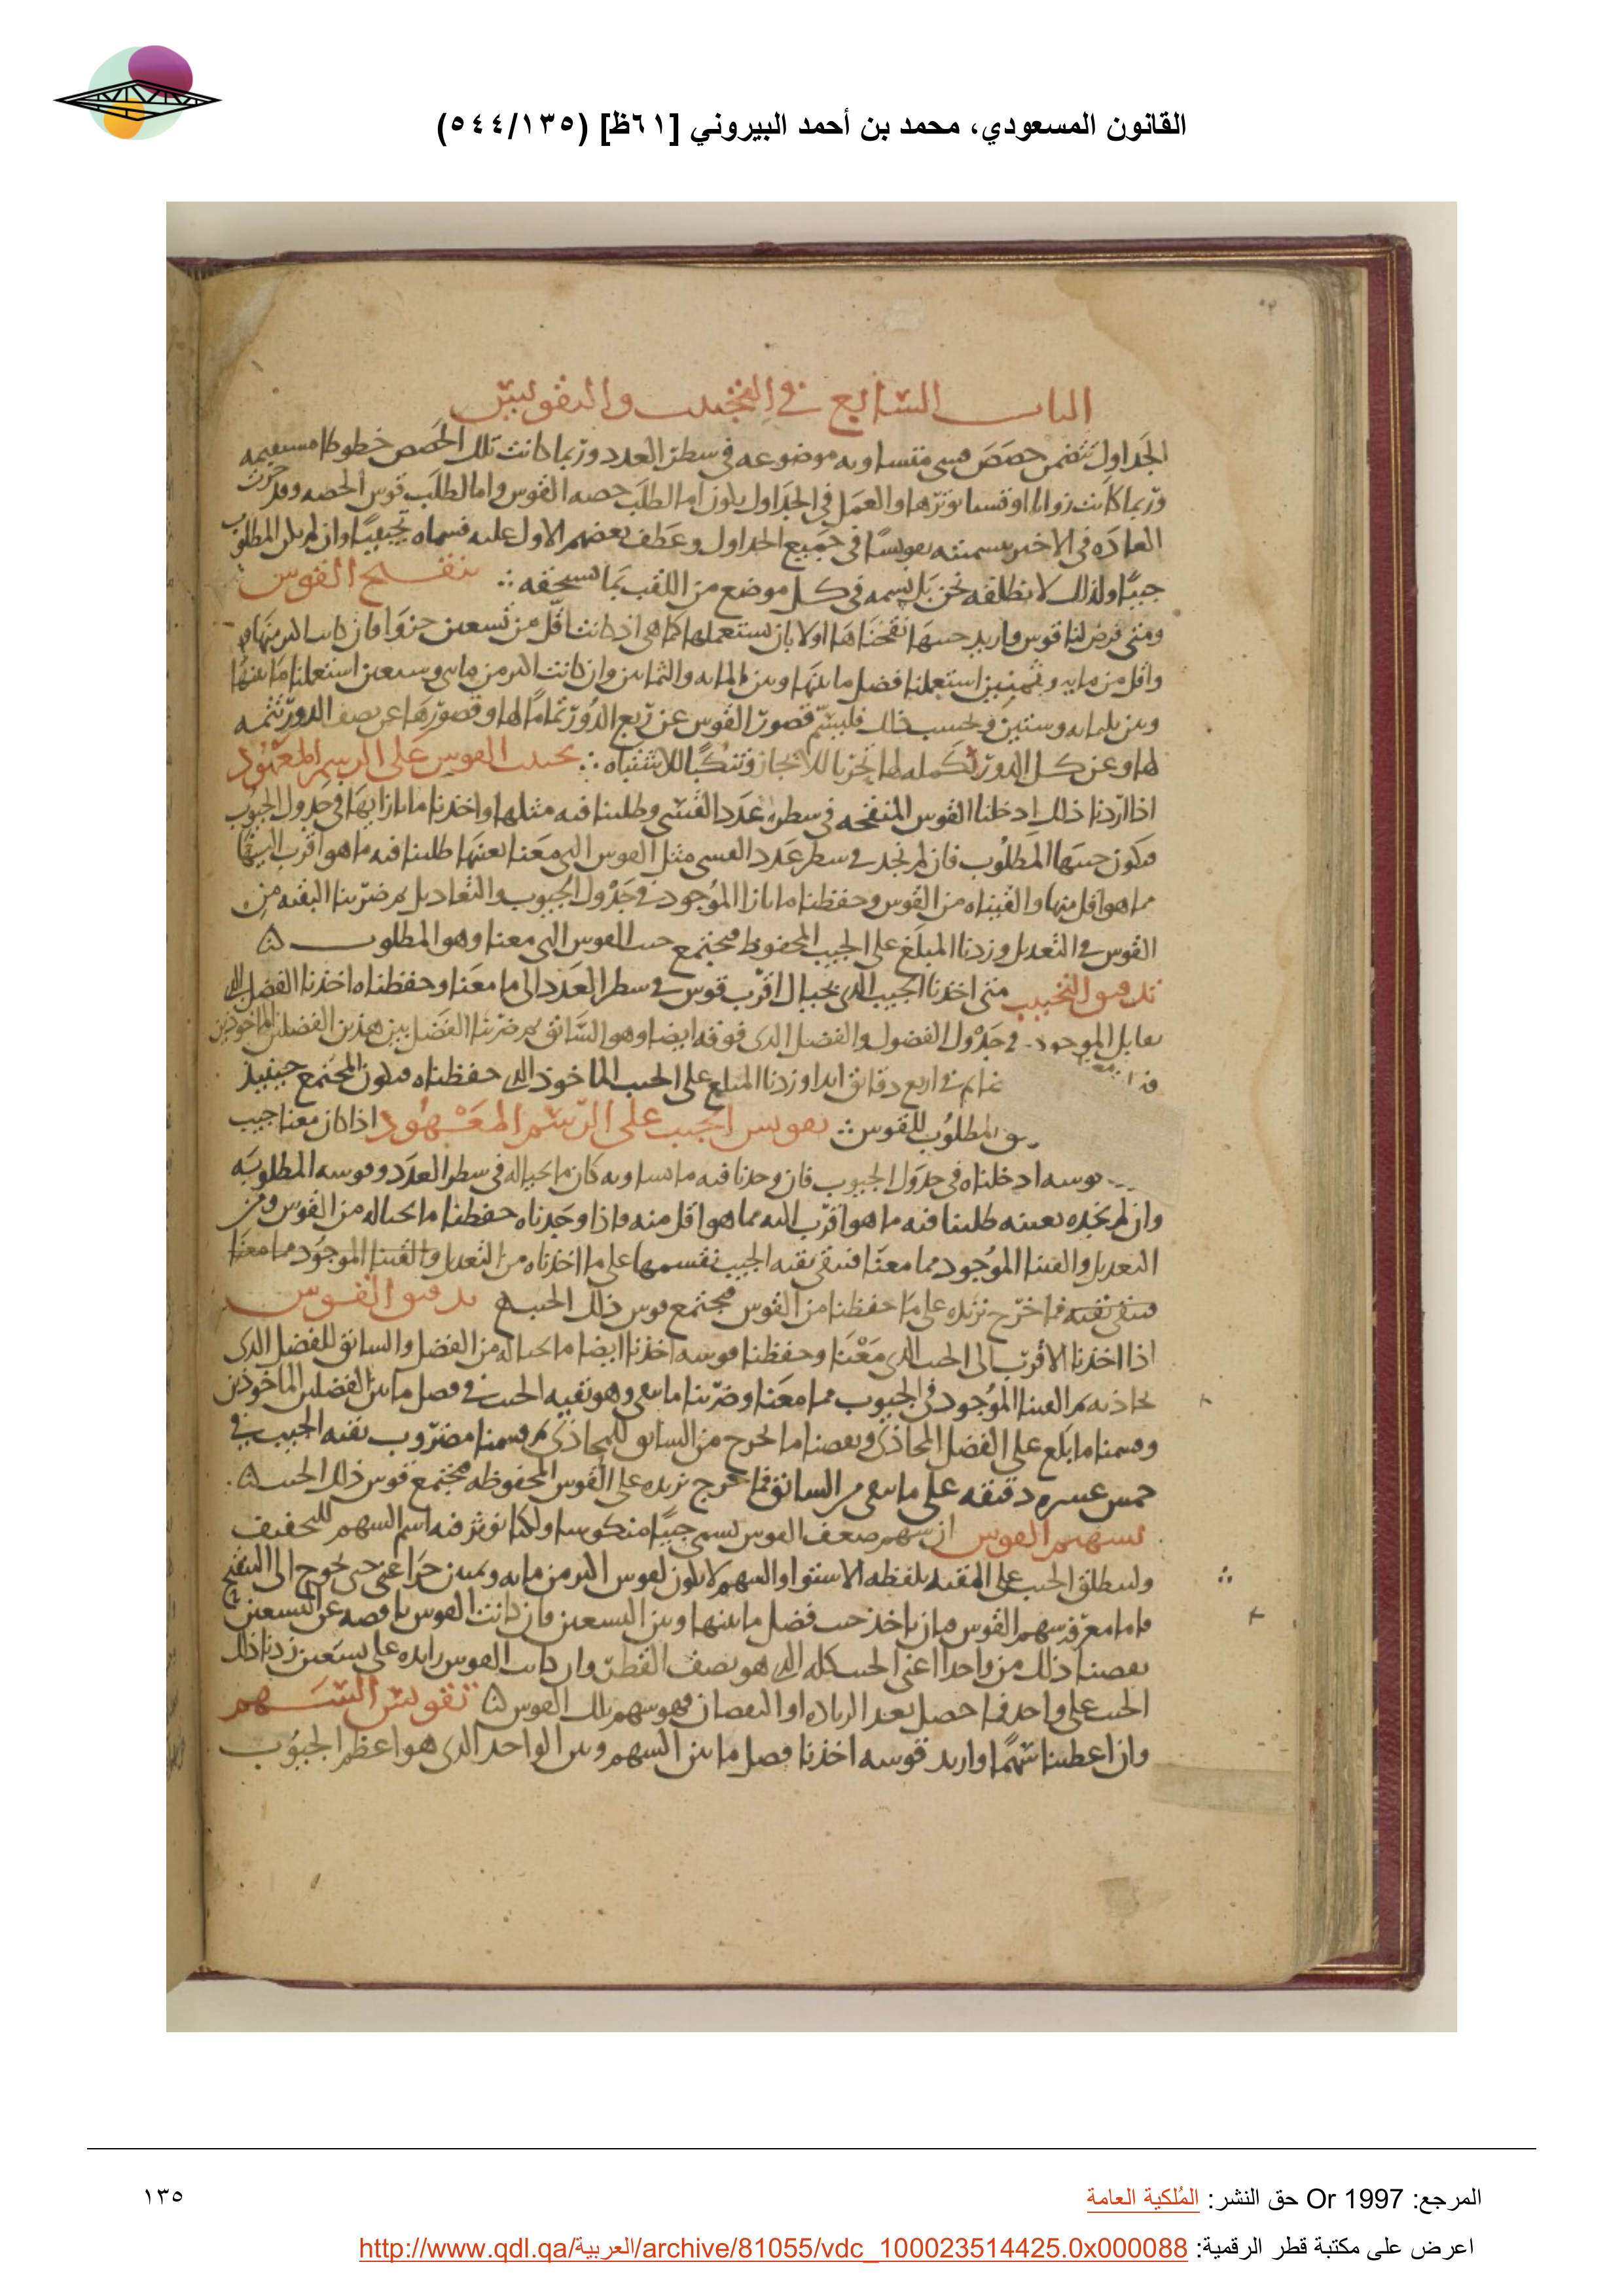 القانون المسعودي، محمد بن أحمد البيروني [٦١ظ] (٥٤٤/١٣٥)
الباب السابع في التجييب والتقويس
الجداول تتضمن حصص قسي متساويه موضوعه في سطر العدد وربما كانت تلك الحصص خطوطا مستقيمه
وربما كانت زوايا او قسيا توترها والعمل في الجداول يكون اما لطلب حصه القوس واما لطلب قوس الحصه وقد جرت
العاده في الاخير بتسميته تقويسا في جميع الجداول وعطف بعضهم الاول عليه فسماه تجييبا وان لم يكن المطلوب
جيبا ولذلك لا نطلقه نحن بل نسمه في كل موضع من اللقب بما يستحقه ∴ تنقيح القوس
ومتى فرض لنا قوس واريد جيبها نقحناها اولا بان نستعملها كما هي اذ كانت اقل من تسعين جزوا فان كانت اكثر منها
واقل من مايه وثمنين استعملنا فضل ما بينها وبين المايه والثمانين وان كانت اكثر من مايتي وسبعين استعملنا ما بينها
وبين ثلثمايه وستين وبحسب ذلك فليتمم قصور القوس عن ربع الدور تماما لها وقصورها عن نصف الدور تتمه
لها وعن كل الدور تكمله لها تحريا للايجاز وتنكبا للاشتباه ∴ تجييب القوس على الرسم المعهود
اذا اردنا ذلك ادخلنا القوس المنقحه في سطر عدد القسي وطلبنا فيه مثلها واخذنا ما بازايها في جدول الجيوب
فيكون جيبها المطلوب فان لم نجد في سطر عدد القسي مثل القوس التي معنا بعينها طلبنا فيه ما هو اقرب اليها
مما هو اقل منها والقيناه من القوس وحفظنا ما بازا الموجود في جدول الجيوب والتعاديل ثم ضربنا البقيه من
القوس في التعديل وزدنا المبلغ على الجيب المحفوظ فيجتمع جيب القوس التي معنا وهو المطلوب
تدقيق التجييب متى اخذنا الجيب الذي بحيال اقرب قوس في سطر العدد الى ما معنا وحفظناه اخذنا الفضل الذي
يقابل الموجود في جدول الفضول والفضل الذي فوقه ايضا وهو السابق ثم ضربنا الفضل بين هذين الفضلين الماخوذين
في اربع دقايق ابدا وزدنا المبلغ على الجيب الماخوذ الذي حفظناه فيكون المجتمع حينيذ
المطلوب للقوس ∴ تقويس الجيب على الرسم المعهود اذا كان معنا جيب
قوسه ادخلناه في جدول الجيوب فان وجدنا فيه ما يساويه كان ما بحياله في سطر العدد وقوسه المطلوبه
وان لم نجده بعينه طلبنا فيه ما هو اقرب اليه مما هو اقل منه فاذا وجدناه حفظنا ما بحياله من القوس ومن
التعديل والقينا الموجود مما معنا فتبقى بقيه الجيب نقسمها على ما اخذناه من التعديل والقينا الموجود مما معنا
فتبقى بقيه فما خرج نزيده على ما حفظنا من القوس فيجتمع قوس ذلك الجيب تدقيق القوس
اذا اخذنا الاقرب الى الجيب الذي معنا وحفظنا قوسه اخذنا ايضا ما بحياله من الفضل والسابق للفضل الذي
يحاذيه ثم القينا الموجود في الجيوب مما معنا وضربنا ما بقي وهو بقيه الجيب في فضل ما بين الفضلين الماخوذين
وقسمنا ما بلغ على الفضل المحاذي ونقصنا ما خرج من السابق للمحاذي ثم قسمنا مضروب بقيه الجيب في
خمس عشره دقيقه على ما بقي من السابق فما خرج نزيده على القوس المحفوظه فيجتمع قوس ذلك الجيب
تسهيم القوس ان سهم ضعف القوس يسمى جيبا منكوسا ولكنا نوثر فيه اسم السهم للتخفيف
ولينطلق الجيب على المقيد بلفظه الاستوا والسهم لا يكون لقوس اكثر من مايه وثمنين جزا غنى حتى نحوج الى التنقيح
فاما معرفه سهم القوس فبان ناخذ جيب فضل ما بينها وبين التسعين فان كانت القوس ناقصه عن التسعين
نقصنا ذلك من واحد اعني الجيب كله الذي هو نصف القطر وان كانت القوس زايده على تسعين زدنا ذلك
الجيب على واحد فما حصل بعد الزياده او النقصان فهو سهم تلك القوس تقويس السهم
وان اعطينا سهما واريد قوسه اخذنا فضل ما بين السهم وبين الواحد الذي هو اعظم الجيوب
المرجع: Or 1997 حق النشر: المُلكية العامة
١٣٥
اعرض على مكتبة قطر الرقمية: http://www.qdl.qa/العربية/archive/81055/vdc_100023514425.0x000088